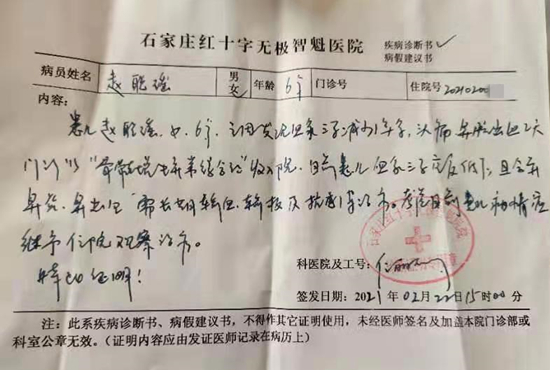 石家庄红十字无极智魁医院
疾病诊断书 ✓
病假建议书
病员姓名 赵聪瑶 男 女✓ 年龄 6岁 门诊号 住院号 2021020
内容:
患儿赵聪瑶,女,6岁,主因发现血象三系减少1年余,头痛 鼻腔出血2天
门诊以"骨髓增生异常综合征"收入院,目前患儿血象三系 低下,且合并
鼻 ,鼻出血,需长期输血、输板及抗感 治疗。考虑目前患儿病情应
继续住院观察治疗。
特此证明!
科医院及工号:
签发日期:2021年02月22日15时00分
注:此系疾病诊断书、病假建议书,不得作其它证明使用,未经医师签名及加盖本院门诊部或
科室公章无效。(证明内容应由发证医师记录在病历上)